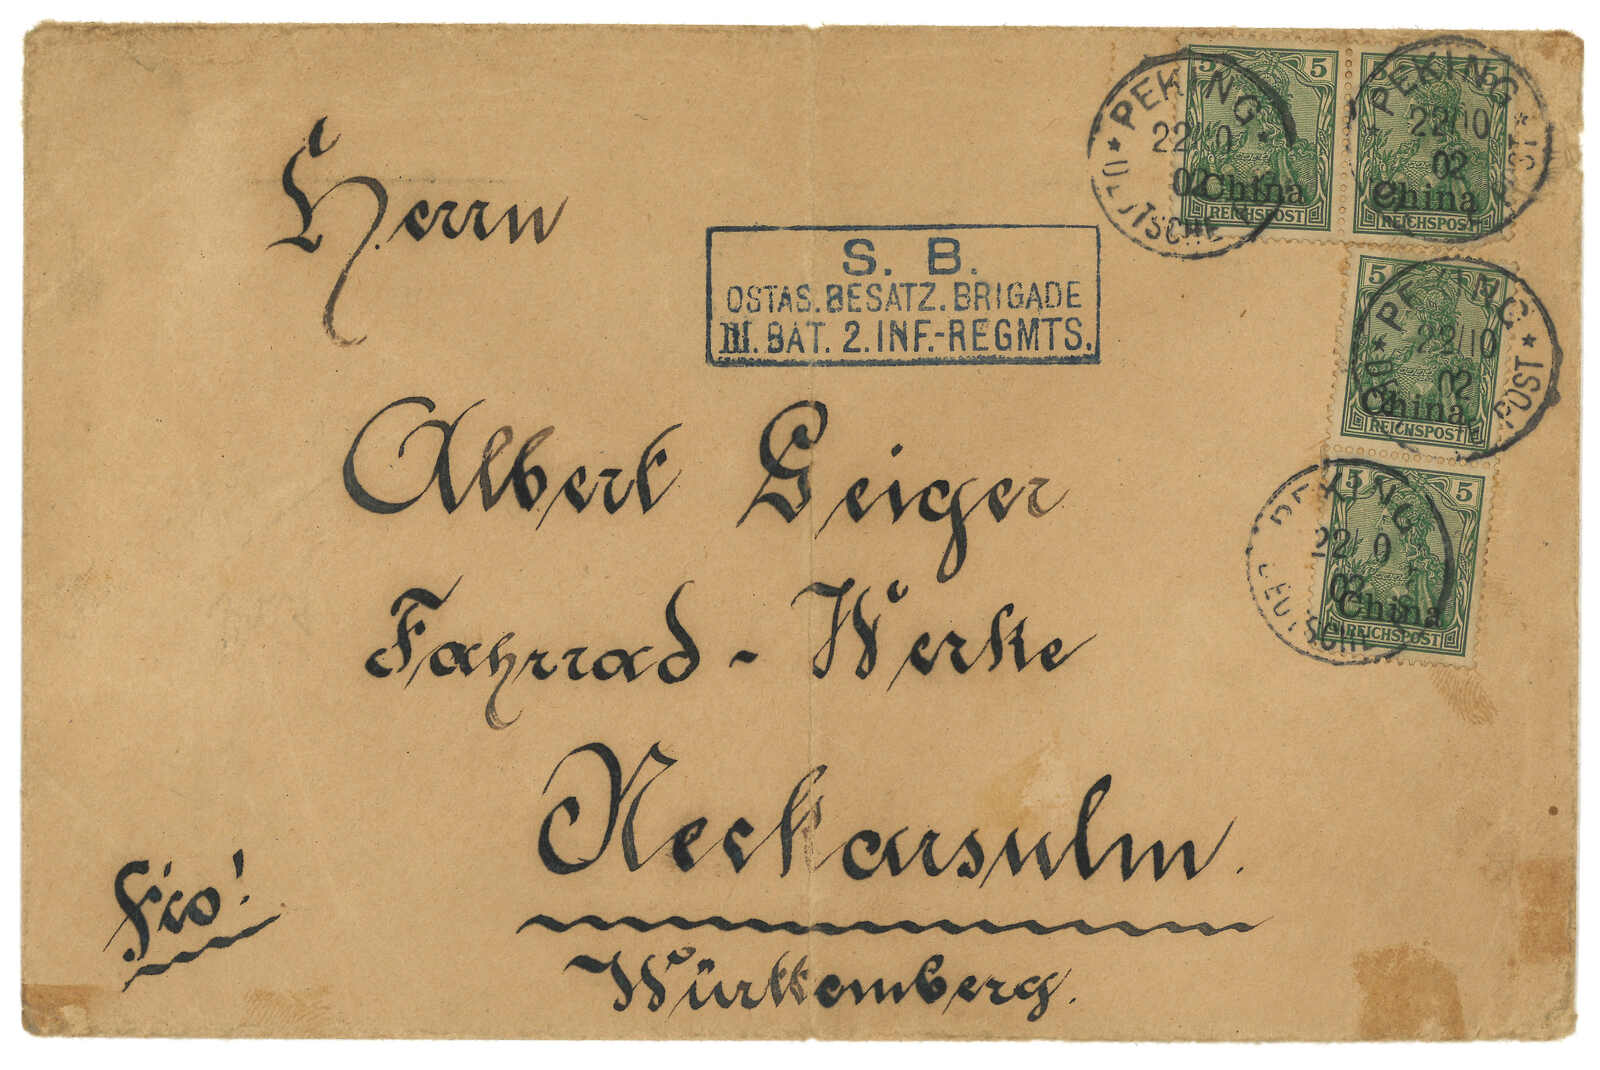 Herrn
Albert Geiger
Fahrrad-Werke
Neckarsulm.
Württemberg.
Frco!
S. B.
OSTAS. BESATZ. BRIGADE
III. BAT. 2. INF.-REGMTS.
5 5
China
REICHSPOST
5 5
China
REICHSPOST
5
China
REICHSPOST
5 5
China
REICHSPOST
PEKING
22/10
02
DEUTSCHE
PEKING
22/10
02
PEKING
22/10
02
POST
PEKING
22/10
02
DEUTSCHE